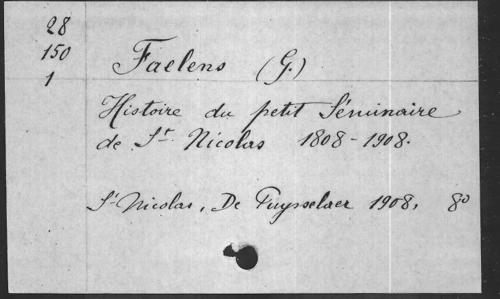 28
150
1
Faelens (G.)
Histoire du petit Séminaire
de St. Nicolas 1808-1908.
St. Nicolas, De Puysselaer 1908, 8o